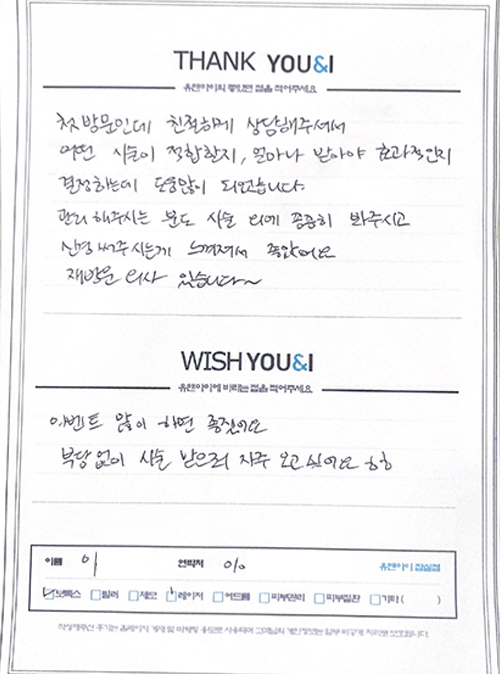 THANK YOU&I
유앤아이의 좋았던 점을 적어주세요
첫방문인데 친절하게 상담해주셔서
어떤 시술이 적합한지, 얼마나 받아야 효과적인지
결정하는데 도움많이 되었습니다.
관리 해주시는 분도 시술 외에 꼼꼼히 봐주시고
신경써주시는게 느껴져서 좋았어요
재방문 의사 있습니다~
WISH YOU&I
유앤아이에 바라는 점을 적어주세요
이벤트 많이 하면 좋겠어요
부담없이 시술 받으러 자주 오고싶어요 ㅎㅎ
이름 이 연락처 010 유앤아이 잠실점
보톡스 필러 제모 레이저 여드름 피부관리 피부질환 기타( )